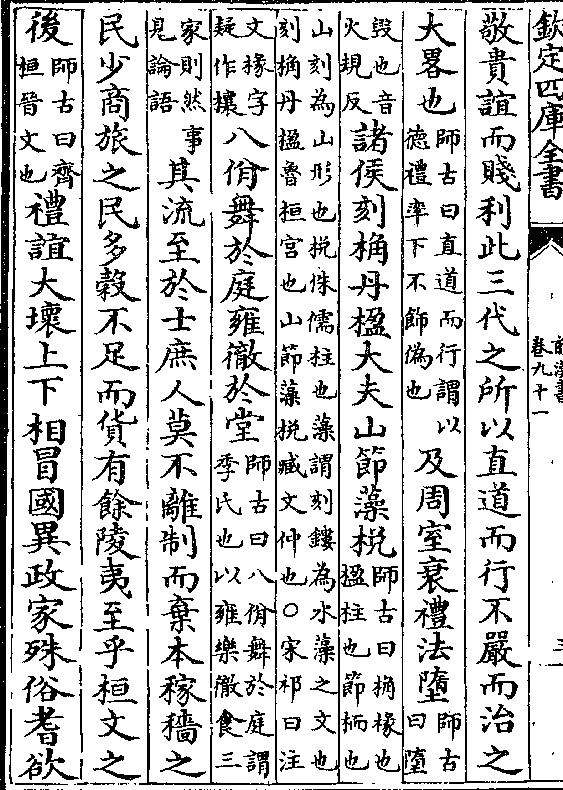 欽定四庫全書
卷九十一
敬貴誼而賤利此三代之所以直道而行不嚴而治之
大畧也師古曰直道而行謂以德禮率下不飾偽也及周室衰禮法墮師古曰墮
毀也音火規反諸侯刻桷丹楹大夫山節藻梲師古曰桷椽也楹柱也節栭也
山刻為山形也梲侏儒柱也藻謂刻鏤為水藻之文也
刻桷丹楹魯桓宮也山節藻梲臧文仲也○宋祁曰注
文椽字疑作榱八佾舞於庭雍徹於堂師古曰八佾舞於庭謂季氏也以雍樂徹食三
家則然事見論語其流至於士庶人莫不離制而棄本稼穡之
民少商旅之民多穀不足而貨有餘陵夷至乎桓文之
後師古曰齊桓晉文也禮誼大壞上下相冒國異政家殊俗耆欲